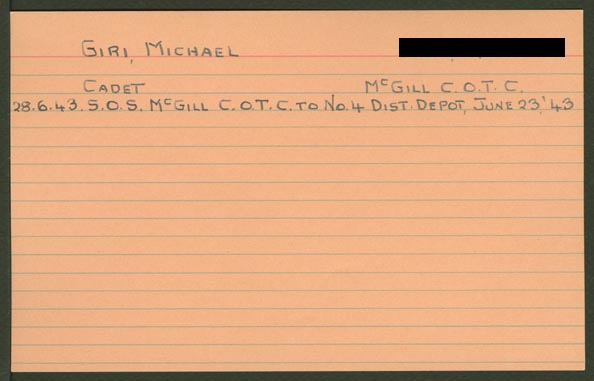 GIRI, MICHAEL
CADET McGILL C.O.T.C.
28.6.43. S.O.S. McGILL C.O.T.C. TO No.4 DIST. DEPOT, JUNE 23,'43